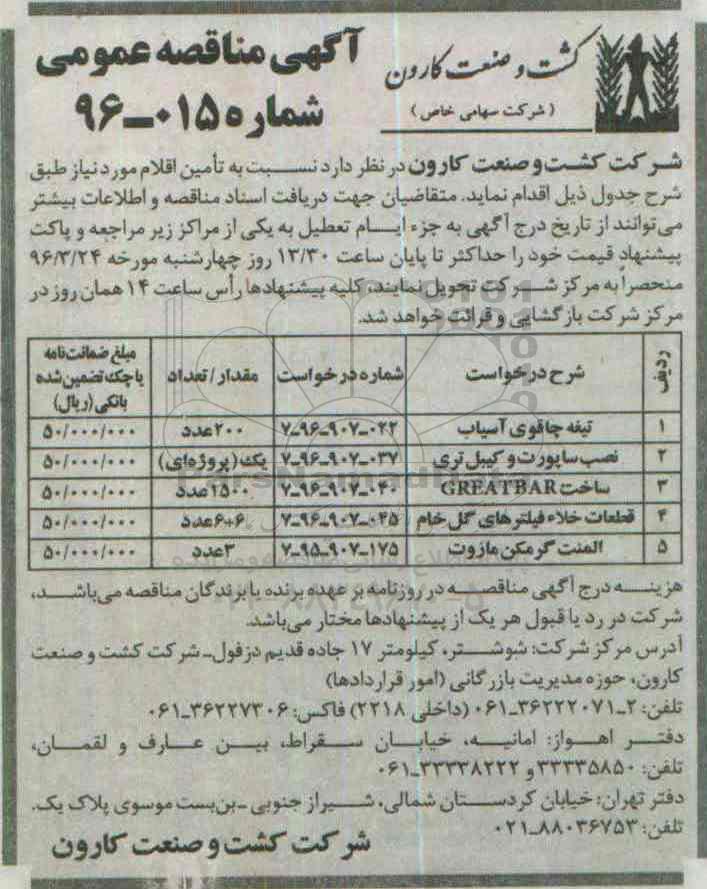 کشت و صنعت کارون
(شرکت سهامی خاص)
آگهی مناقصه عمومی
شماره ۰۱۵-۹۶
شرکت کشت و صنعت کارون در نظر دارد نسبت به تأمین اقلام مورد نیاز طبق
شرح جدول ذیل اقدام نماید. متقاضیان جهت دریافت اسناد مناقصه و اطلاعات بیشتر
می‌توانند از تاریخ درج آگهی به جزء ایام تعطیل به یکی از مراکز زیر مراجعه و پاکت
پیشنهاد قیمت خود را حداکثر تا پایان ساعت ۱۳/۳۰ روز چهارشنبه مورخه ۹۶/۳/۲۴
منحصراً به مرکز شرکت تحویل نمایند، کلیه پیشنهادها رأس ساعت ۱۴ همان روز در
مرکز شرکت بازگشایی و قرائت خواهد شد.
ردیف | شرح درخواست | شماره درخواست | مقدار/تعداد | مبلغ ضمانت‌نامه یا چک تضمین شده بانکی (ریال)
۱ | تیغه چاقوی آسیاب | ۷-۹۶-۹۰۷-۰۲۲ | ۲۰۰ عدد | ۵۰/۰۰۰/۰۰۰
۲ | نصب ساپورت و کیبل تری | ۷-۹۶-۹۰۷-۰۳۷ | یک (پروژه‌ای) | ۵۰/۰۰۰/۰۰۰
۳ | ساخت GREATBAR | ۷-۹۶-۹۰۷-۰۴۰ | ۱۵۰۰ عدد | ۵۰/۰۰۰/۰۰۰
۴ | قطعات خلاء فیلترهای گل خام | ۷-۹۶-۹۰۷-۰۴۵ | ۶+۶ عدد | ۵۰/۰۰۰/۰۰۰
۵ | المنت گرمکن مازوت | ۷-۹۵-۹۰۷-۱۷۵ | ۳ عدد | ۵۰/۰۰۰/۰۰۰
هزینه درج آگهی مناقصه در روزنامه بر عهده برنده یا برندگان مناقصه می‌باشد،
شرکت در رد یا قبول هر یک از پیشنهادها مختار می‌باشد.
آدرس مرکز شرکت: شوشتر، کیلومتر ۱۷ جاده قدیم دزفول- شرکت کشت و صنعت
کارون، حوزه مدیریت بازرگانی (امور قراردادها)
تلفن: ۲-۳۶۲۲۲۰۷۱-۰۶۱ (داخلی ۲۲۱۸) فاکس: ۳۶۲۲۷۳۰۶-۰۶۱
دفتر اهواز: امانیه، خیابان سقراط، بین عارف و لقمان،
تلفن: ۳۳۳۳۵۸۵۰ و ۳۳۳۳۸۲۲۲-۰۶۱
دفتر تهران: خیابان کردستان شمالی، شیراز جنوبی - بن‌بست موسوی پلاک یک.
تلفن: ۸۸۰۳۶۷۵۳-۰۲۱
شرکت کشت و صنعت کارون